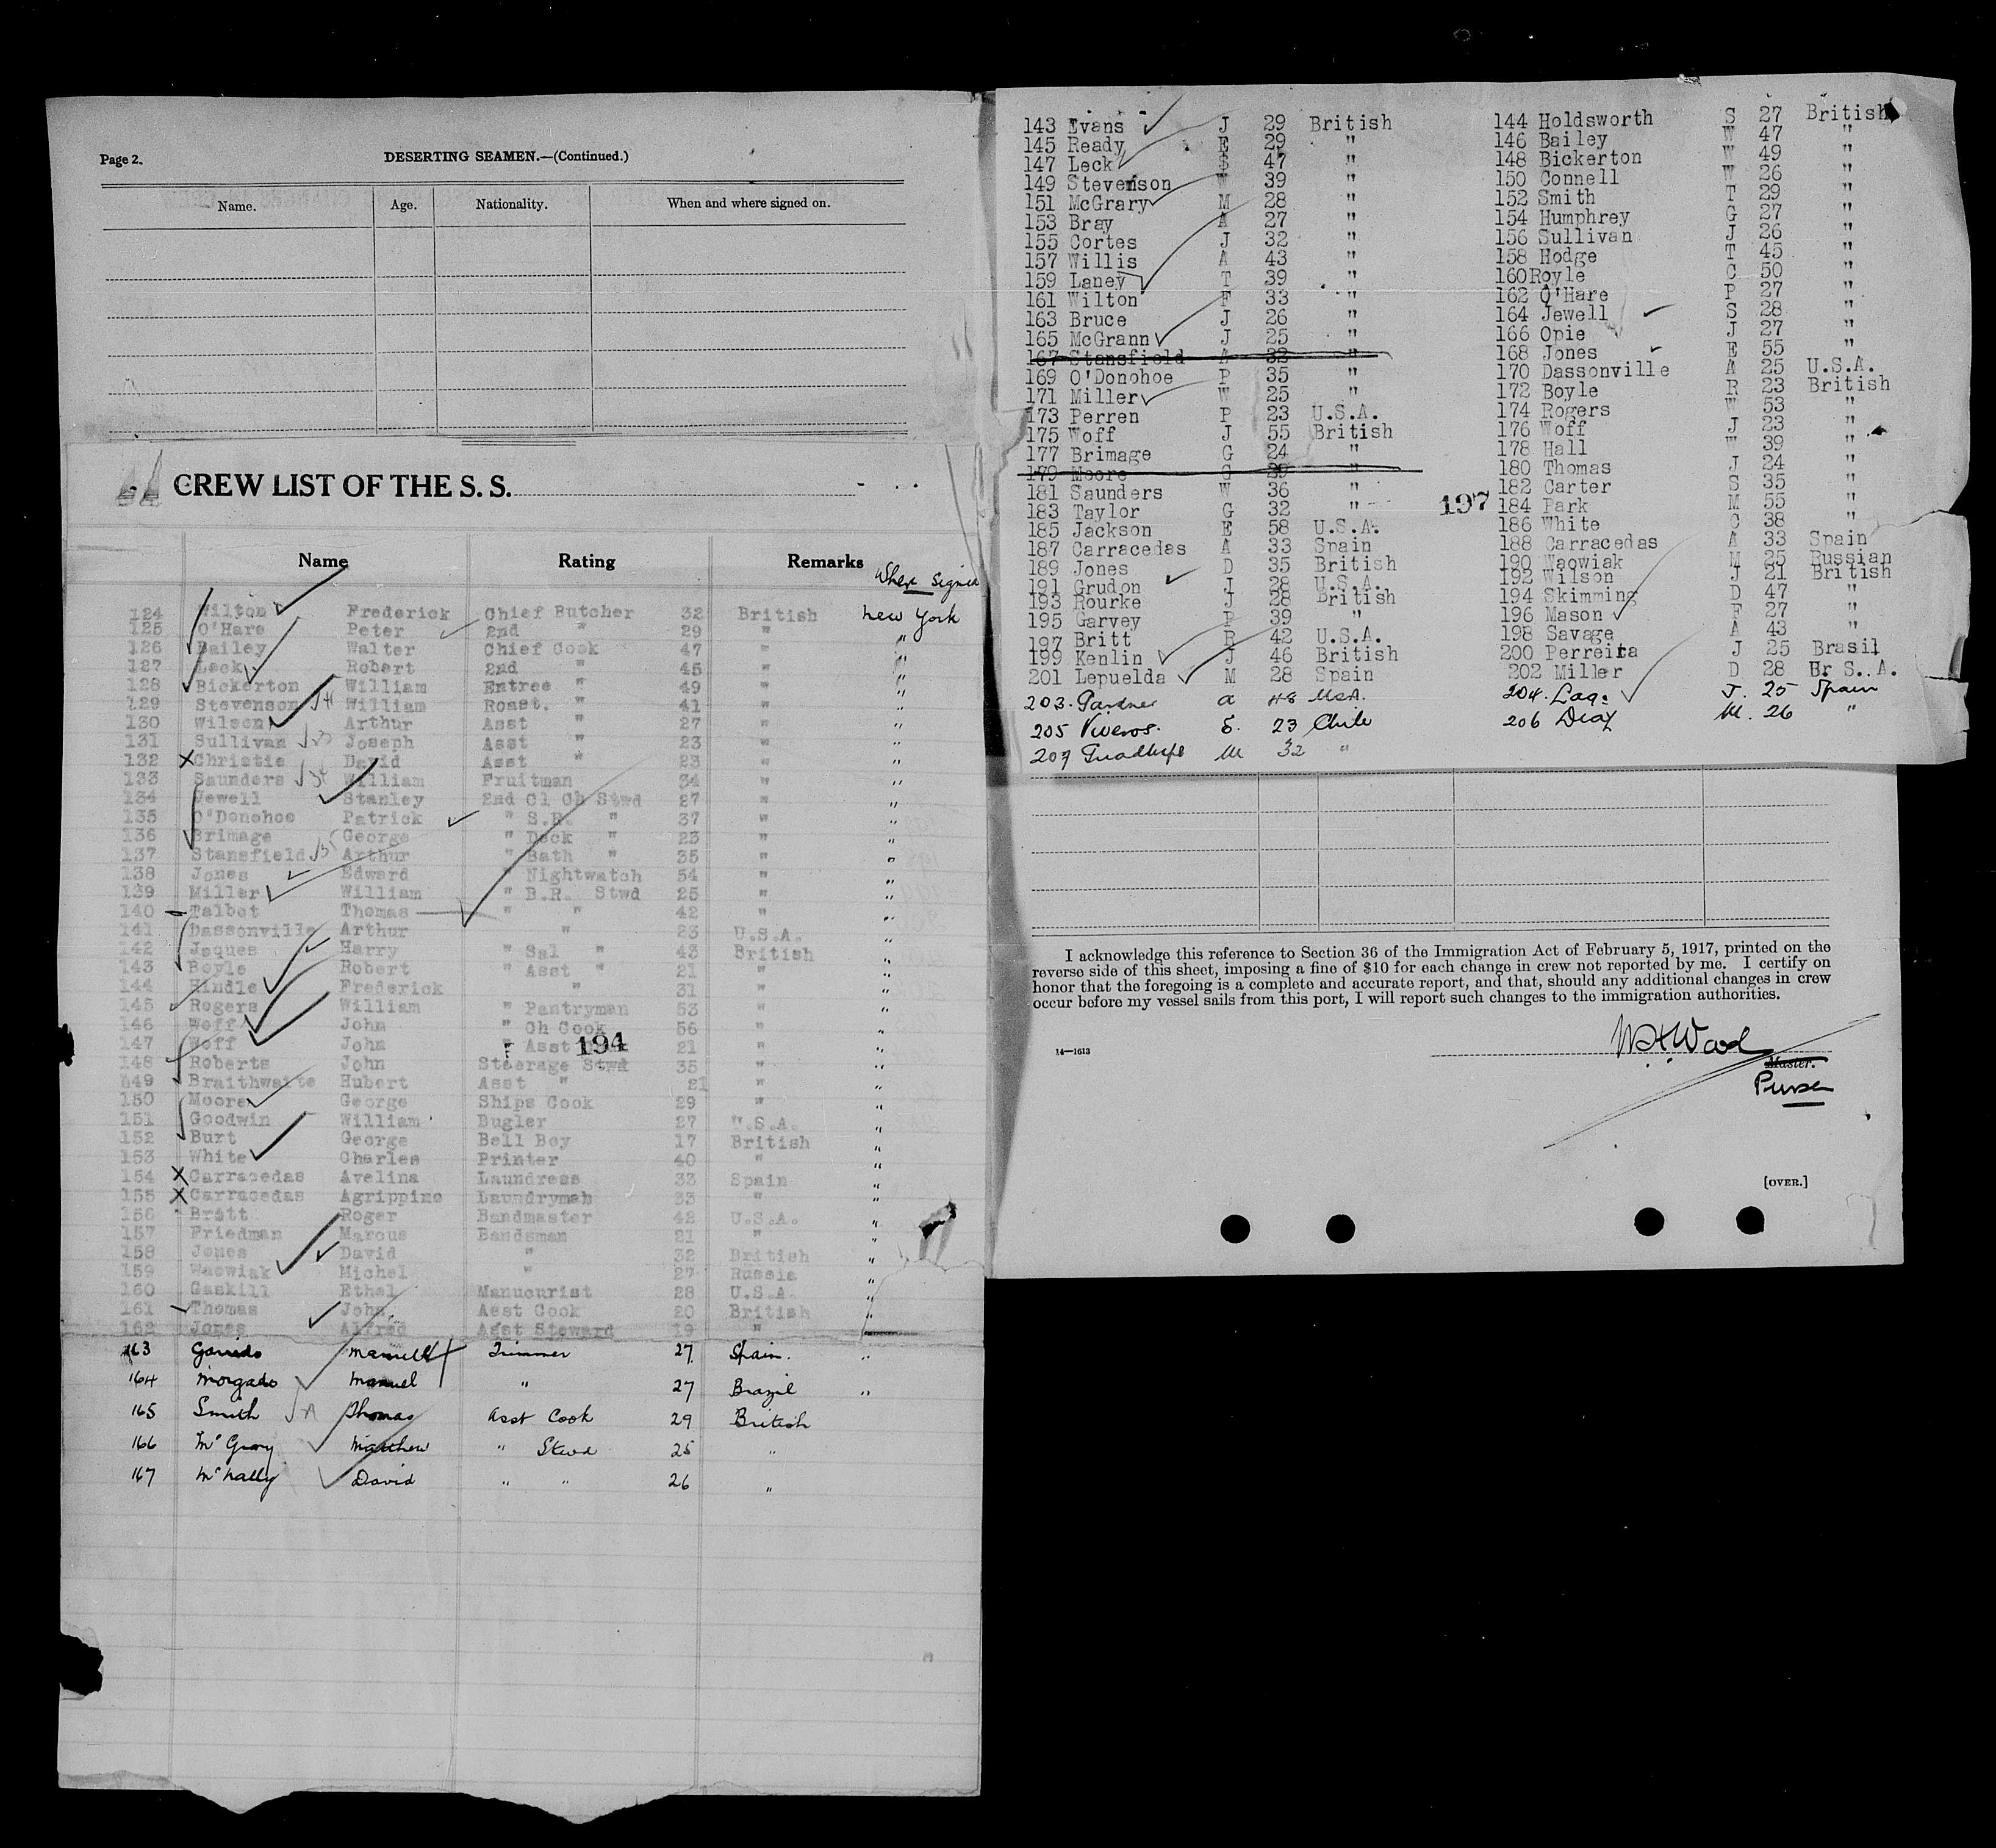 Page 2.
DESERTING SEAMEN.—(Continued.)
Name. Age. Nationality. When and where signed on.
CREW LIST OF THE S. S.
Name Rating Remarks Where signed
124 Wilton Frederick Chief Butcher 32 British New York
125 O'Hare Peter 2nd " 29 " "
126 Bailey Walter Chief Cook 47 " "
127 Leck Robert 2nd " 45 " "
128 Bickerton William Entree " 49 " "
129 Stevenson William Roast. " 41 " "
130 Wilson Arthur Asst " 27 " "
131 Sullivan Joseph Asst " 23 " "
132 Christie David Asst " 23 " "
133 Saunders William Fruitman 34 " "
134 Jewell Stanley 2nd Cl Ch Stwd 27 " "
135 O'Donohoe Patrick " S.R. " 37 " "
136 Brimage George " Deck " 23 " "
137 Stansfield Arthur " Bath " 35 " "
138 Jones Edward " Nightwatch 54 " "
139 Miller William " B.R. Stwd 25 " "
140 Talbot Thomas " " 42 " "
141 Dassonville Arthur " 23 U.S.A. "
142 Jaques Harry " Sal " 43 British "
143 Boyle Robert " Asst " 21 " "
144 Hindle Frederick " 31 " "
145 Rogers William " Pantryman 53 " "
146 Woff John " Ch Cook 56 " "
147 Woff John " Asst 21 " "
194
148 Roberts John Steerage Stwd 35 " "
149 Braithwaite Hubert Asst " 21 " "
150 Moore George Ships Cook 29 " "
151 Goodwin William Bugler 27 U.S.A. "
152 Burt George Bell Boy 17 British "
153 White Charles Printer 40 " "
154 Carracedas Avelina Laundress 33 Spain "
155 Carracedas Agrippino Laundryman 33 " "
156 Britt Roger Bandmaster 42 U.S.A. "
157 Friedman Marcus Bandsman 21 " "
158 Jones David " 32 British "
159 Waowiak Michel " 27 Russia "
160 Gaskill Ethel Manucurist 28 U.S.A. "
161 Thomas John Asst Cook 20 British "
162 Jones Alfred Asst Steward 19 " "
163 Garrido Manuel Trimmer 27 Spain. "
164 Morgado Manuel " 27 Brazil "
165 Smith Thomas Asst Cook 29 British
166 McGrary Matthew " Stwd 25 "
167 McNally David " " 26 "
143 Evans J 29 British
145 Ready E 29 "
147 Leck S 47 "
149 Stevenson W 39 "
151 McGrary M 28 "
153 Bray A 27 "
155 Cortes J 32 "
157 Willis A 43 "
159 Laney T 39 "
161 Wilton F 33 "
163 Bruce J 26 "
165 McGrann J 25 "
167 Stansfield A 32 "
169 O'Donohoe P 35 "
171 Miller W 25 "
173 Perren P 23 U.S.A.
175 Woff J 55 British
177 Brimage G 24 "
179 Moore G 29 "
181 Saunders W 36 "
183 Taylor G 32 "
185 Jackson E 58 U.S.A.
187 Carracedas A 33 Spain
189 Jones D 35 British
191 Grudon J 28 U.S.A.
193 Rourke J 28 British
195 Garvey P 39 "
197 Britt R 42 U.S.A.
199 Kenlin J 46 British
201 Lepuelda M 28 Spain
203. Gardner a 48 USA.
205 Viveros. E. 23 Chile
207 M 32 "
144 Holdsworth S 27 British
146 Bailey W 47 "
148 Bickerton W 49 "
150 Connell W 26 "
152 Smith T 29 "
154 Humphrey G 27 "
156 Sullivan J 26 "
158 Hodge T 45 "
160Royle C 50 "
162 O'Hare P 27 "
164 Jewell S 28 "
166 Opie J 27 "
168 Jones E 55 "
170 Dassonville A 25 U.S.A.
172 Boyle R 23 British
174 Rogers W 53 "
176 Woff J 23 "
178 Hall W 39 "
180 Thomas J 24 "
182 Carter S 35 "
197
184 Park M 55 "
186 White C 38 "
188 Carracedas A 33 Spain
190 Waowiak M 25 Russian
192 Wilson J 21 British
194 Skimming D 47 "
196 Mason F 27 "
198 Savage A 43 "
200 Perreira J 25 Brasil
202 Miller D 28 U. S. A.
204. Lag. J. 25 Spain
206 Diaz M. 26 "
I acknowledge this reference to Section 36 of the Immigration Act of February 5, 1917, printed on the
reverse side of this sheet, imposing a fine of $10 for each change in crew not reported by me. I certify on
honor that the foregoing is a complete and accurate report, and that, should any additional changes in crew
occur before my vessel sails from this port, I will report such changes to the immigration authorities.
14—1613
W H Wood
Master.
Purser
[OVER.]